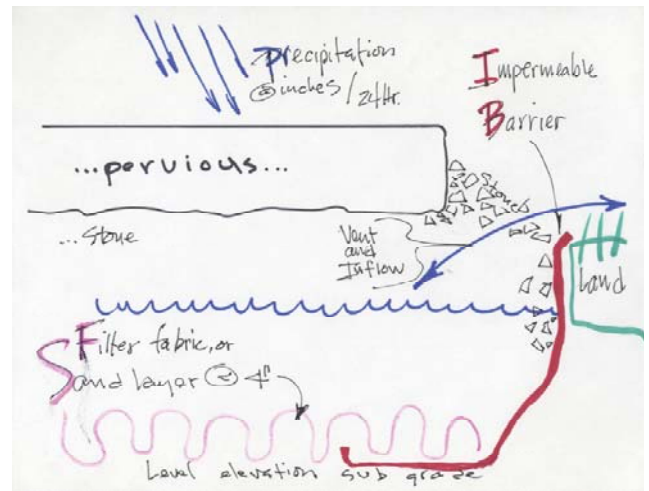 Precipitation
@ inches / 24 Hr.
Impermeable
Barrier
...pervious...
Stone
...Stone
Vent
and
Inflow
Land
Filter fabric, or
Sand layer @ 4"
Level elevation sub grade